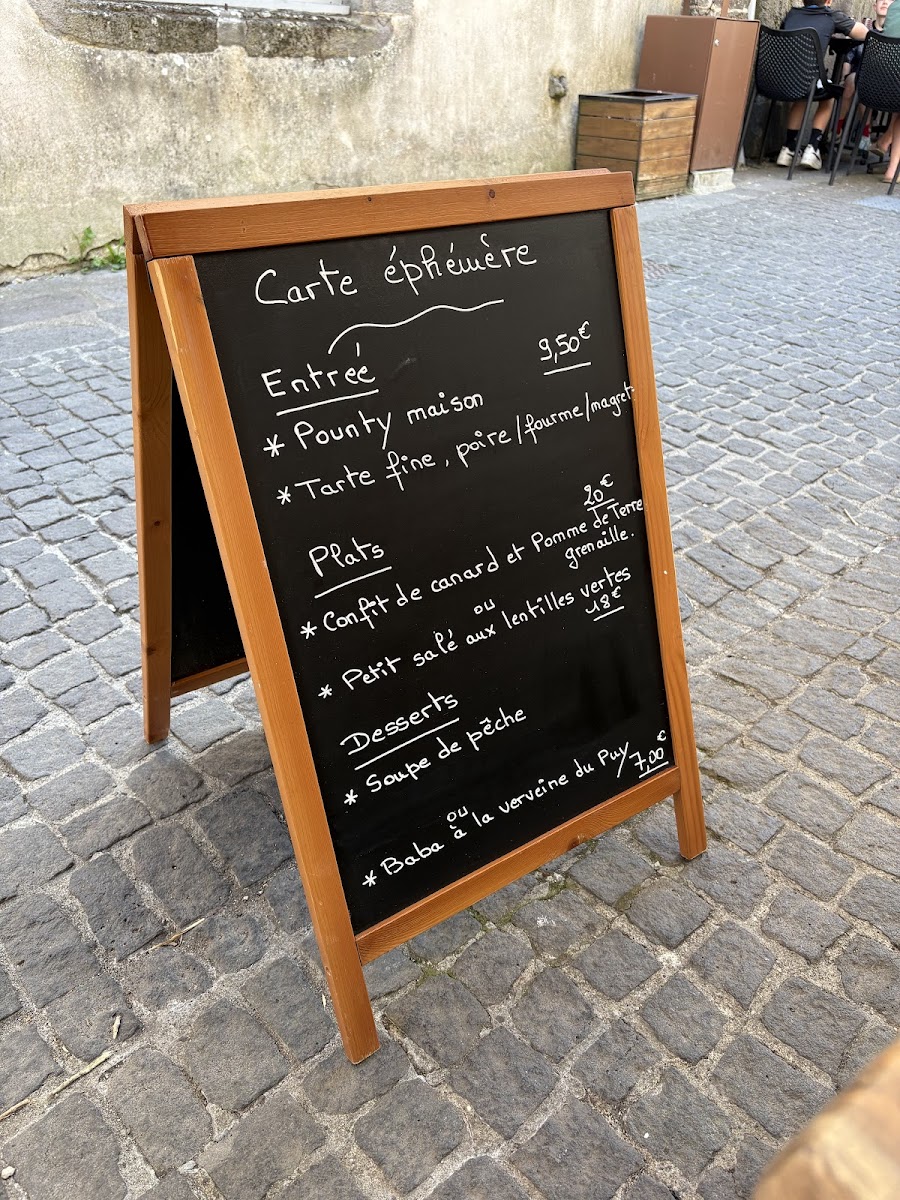 Carte éphémère
Entrée
9,50€
* Pounty maison
* Tarte fine, poire/fourme/magret.
Plats
20€
* Confit de canard et Pomme de Terre
grenaille.
ou
* Petit salé aux lentilles vertes
18€
Desserts
* Soupe de pêche
ou
* Baba à la verveine du Puy / 7,00€